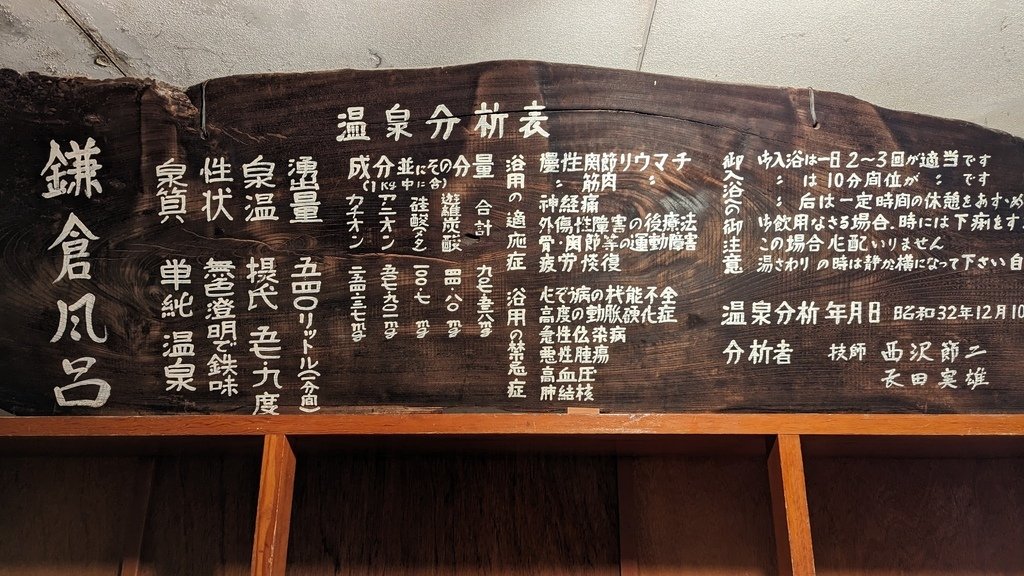 鎌倉風呂
温泉分析表
泉質 単純温泉
性状 無色澄明で鉄味
泉温 摂氏 五七・九度
湧出量 五四〇リットル(一分間)
成分並にその分量
(1kg中に含)
カチオン 一二四三・三七mg
アニオン 五七・九〇二mg
硅酸メタ 一〇〇・七 mg
遊離炭酸 四四・八〇 mg
合計
浴用の適応症
慢性関節リウマチ
〃 筋肉 〃
神経痛
外傷性障害の後療法
骨・関節等の運動障害
疲労恢復
浴用の禁忌症
心ぞう病の代能不全
高度の動脈硬化症
急性伝染病
悪性腫瘍
高血圧
肺結核
御入浴の御注意
御入浴は一日2〜3回が適当です
〃 は10分間位が 〃 です
〃 后は一定時間の休憩をおすゝめ
御飲用なさる場合、時には下痢をす
この場合心配いりません
湯さわりの時は静かに横になって下さい自
温泉分析年月日 昭和32年12月10
分析者 技師 西沢節二
長田実雄